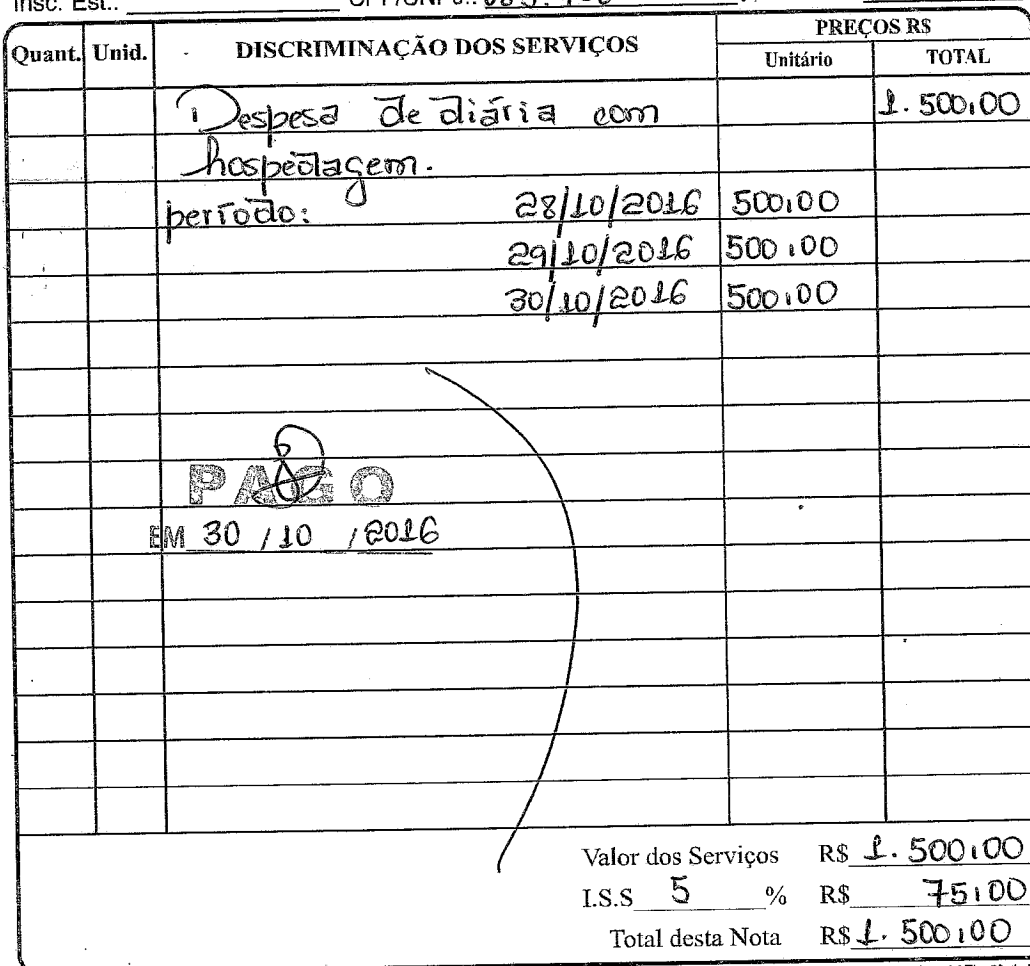 Insc. Est.:
Quant. Unid. DISCRIMINAÇÃO DOS SERVIÇOS PREÇOS R$
Unitário TOTAL
Despesa de diária com 1.500,00
hospedagem.
período: 28/10/2016 500,00
29/10/2016 500,00
30/10/2016 500,00
PAGO
EM 30 / 10 / 2016
Valor dos Serviços R$ 1.500,00
I.S.S 5 % R$ 75,00
Total desta Nota R$ 1.500,00